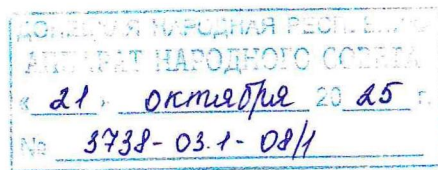 ДОНЕЦКАЯ НАРОДНАЯ РЕСПУБЛИКА
АППАРАТ НАРОДНОГО СОВЕТА
« 21 » октября 20 25 г.
№ 3738-03.1-08/1